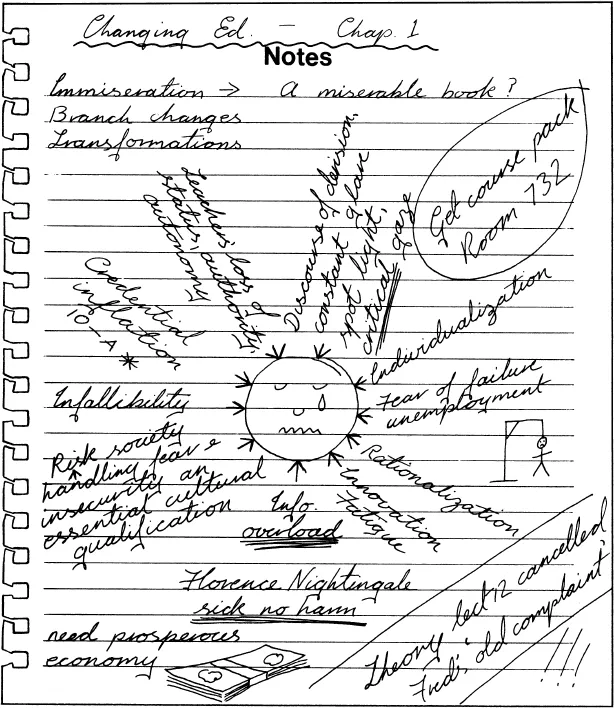 Changing Ed. – Chap. 1
Notes
Immiseration → A miserable book?
Branch changes
Transformations
Get course pack
Room 732
Teachers loss of
status, authority,
autonomy
Discourse of derision,
constant glare
spot light,
critical gaze
Credential
inflation
10 – A *
Individualization
Infallibility
Fear of failure
unemployment
Risk society
handling fear &
insecurity an
essential cultural
qualification
Info.
overload
Innovation
Fatigue
Rationalization
Florence Nightingale
sick no harm
need prosperous
economy
Theory lect 12 cancelled
Fred's 'old complaint'
!!!